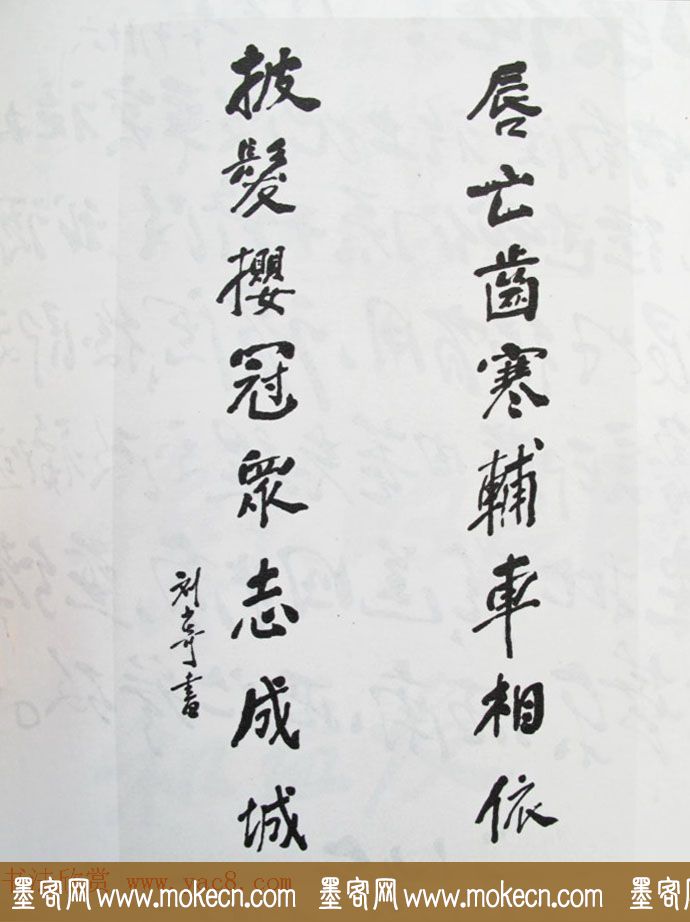 唇亡齒寒輔車相依
披髮攖冠眾志成城
刘士奇書
书法欣赏 www.yac8.com
墨客网 www.mokecn.com 墨客网 www.mokecn.com 墨客网